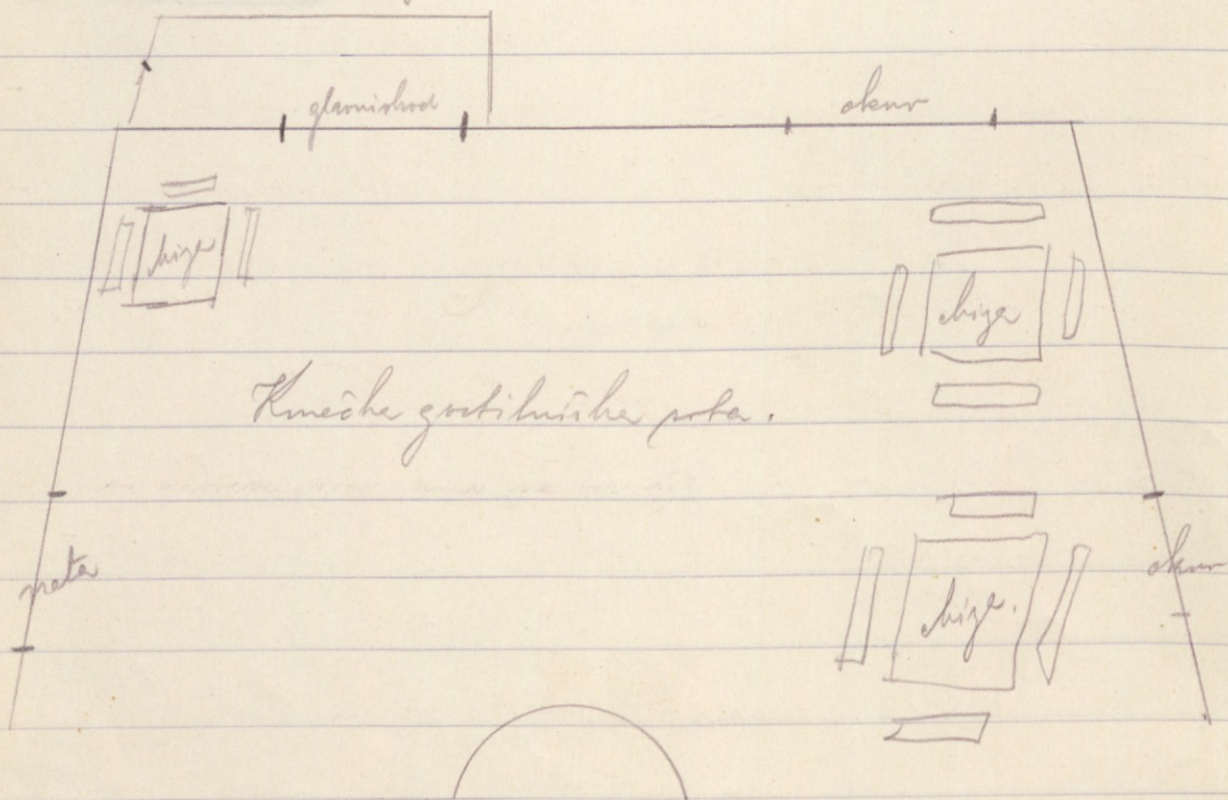 glavni vhod
okno
miza
miza
Kmečka gostilniška soba.
vrata
okno
miza.